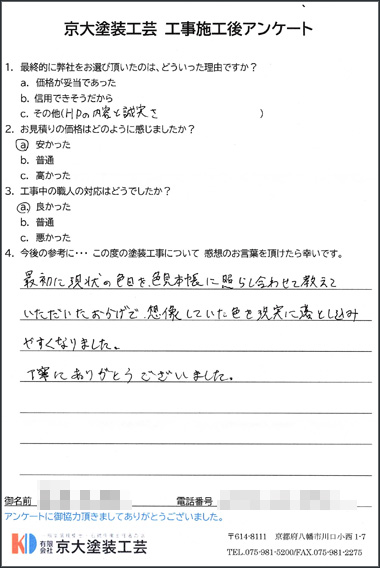 京大塗装工芸 工事施工後アンケート
1. 最終的に弊社をお選び頂いたのは、どういった理由ですか?
a. 価格が妥当であった
b. 信用できそうだから
c. その他(HPの内容と誠実さ )
2. お見積りの価格はどのように感じましたか?
a. 安かった
b. 普通
c. 高かった
3. 工事中の職人の対応はどうでしたか?
a. 良かった
b. 普通
c. 悪かった
4. 今後の参考に・・・ この度の塗装工事について 感想のお言葉を頂けたら幸いです。
最初に現状の色目を、色見本帳に照らし合わせて教えて
いただいたおかげで、想像していた色を現実に落とし込み
やすくなりました。
丁寧にありがとうございました。
御名前 電話番号
アンケートに御協力頂きましてありがとうございました。
KD 有限会社 京大塗装工芸
〒614-8111 京都府八幡市川口小西 1-7
TEL.075-981-5200/FAX.075-981-2275